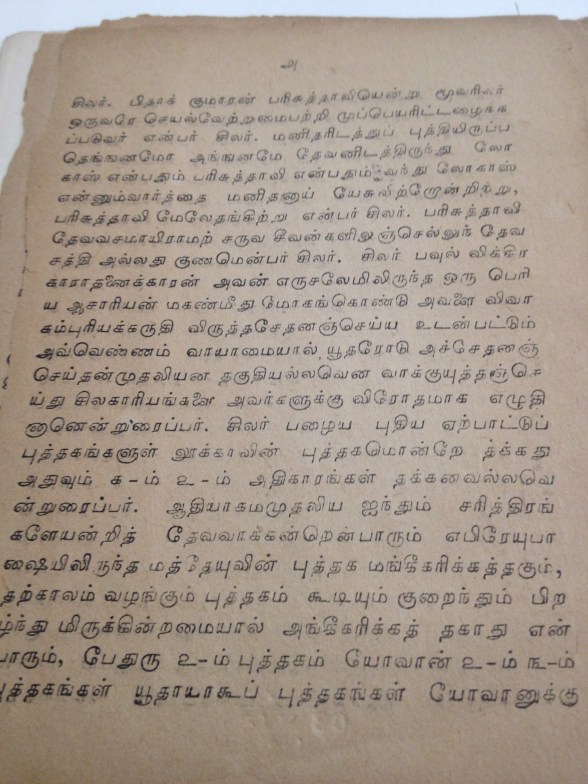 அ
சிலர். பிதாக் குமாரன் பரிசுத்தாவியென்று மூவரிலர்
ஒருவரே செயல்வேற்றமைபற்றி முப்பெயரிட்டழைக்க
ப்படுவர் என்பர் சிலர். மனிதரிடத்துப் புத்தியிருப்ப
தெங்ஙனமோ அங்ஙனமே தேவனிடத்திருந்து லோ
காஸ் என்பதும் பரிசுத்தாவி என்பதும் வந்து லோகாஸ்
என்னும்வார்த்தை மனிதனாய் யேசுவிற்றோன்றிற்று,
பரிசுத்தாவி மேலேதங்கிற்று என்பர் சிலர். பரிசுத்தாவி
தேவவசமாயிராமற் சருவ சீவன்களிலுஞ்செல்லுந் தேவ
சத்தி அல்லது குணமென்பர் சிலர். சிலர் பவுல் விக்கிர
காராதனைக்காரன் அவன் எருசலேமிலிருந்த ஒரு பெரி
ய ஆசாரியன் மகண்மீது மோகங்கொண்டு அவளை விவா
கம்புரியக்கருதி விருத்தசேதனஞ்செய்ய உடன்பட்டும்
அவ்வெண்ணம் வாயாமையால் யூதரோடு அச்சேதனஞ்
செய்தன்முதலியன தகுதியல்லவென வாக்குயுத்தஞ்செ
ய்து சிலகாரியங்களை அவர்களுக்கு விரோதமாக எழுதி
னானென்றுரைப்பர். சிலர் பழைய புதிய ஏற்பாட்டுப்
புத்தகங்களுள் லூக்காவின் புத்தகமொன்றே தக்கது
அதுவும் க-ம் உ-ம் அதிகாரங்கள் தக்கனவல்லவெ
ன்றுரைப்பர். ஆதியாகமமுதலிய ஐந்தும் சரித்திரங்
களேயன்றித் தேவவாக்கன்றென்பாரும் எபிரேயுபா
ஷையிலிருந்த மத்தேயுவின் புத்தக மங்கீகரிக்கத்தகும்,
தற்காலம் வழங்கும் புத்தகம் கூடியும் குறைந்தும் பிற
ழ்ந்து மிருக்கின்றமையால் அங்கீகரிக்கத் தகாது என்
பாரும், பேதுரு உ-ம் புத்தகம் யோவான் உ-ம் ங-ம்
புத்தகங்கள் யூதாயாகூப் புத்தகங்கள் யோவானுக்கு